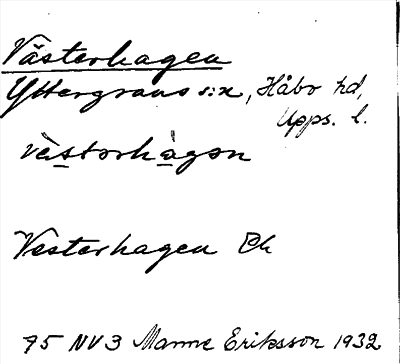 Västerhagen
Yttergrans s:n, Håbo hd,
Upps. l.
västorhàgon
Vesterhagen Ek
75 NV3 Manne Eriksson 1932